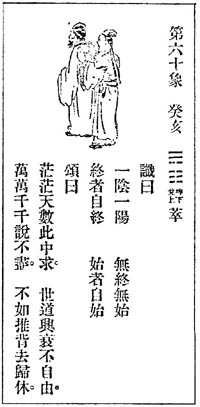 第六十象 癸亥 ☱☷ 坤下兌上 萃
讖曰
一陰一陽 無終無始
終者自終 始者自始
頌曰
茫茫天數此中求。 世道興衰不自由。
萬萬千千說不盡。 不如推背去歸休。